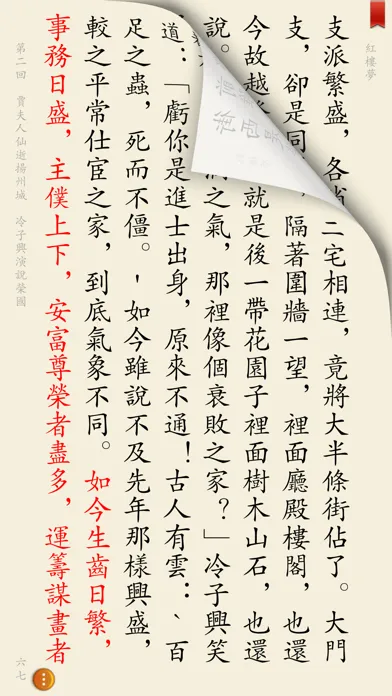 紅樓夢
支派繁盛，各二宅相連，竟將大半條街佔了。大門
支，卻是同隔著圍牆一望，裡面廳殿樓閣，也還
今故越就是後一帶花園子裡面樹木山石，也還
說。之氣，那裡像個衰敗之家？」冷子興笑
道：「虧你是進士出身，原來不通！古人有雲：、百
足之蟲，死而不僵。'如今雖說不及先年那樣興盛，
較之平常仕宦之家，到底氣象不同。如今生齒日繁，
事務日盛，主僕上下，安富尊榮者盡多，運籌謀畫者
第二回 賈夫人仙逝揚州城 冷子興演說榮國
六七